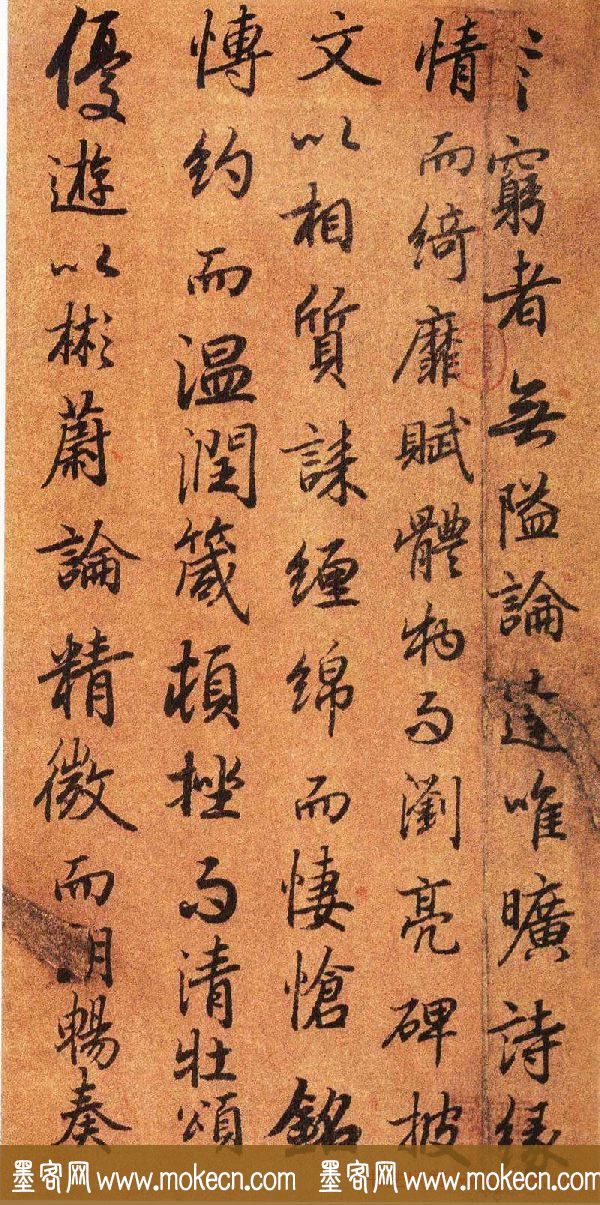 言窮者無隘論達唯曠詩緣
情而綺靡賦體物而瀏亮碑披
文以相質誄纏綿而悽愴銘
慱約而温潤箴頓挫而清壮頌
優遊以彬蔚論精微而朗暢奏
墨客网 www.mokecn.com 墨客网 www.mokecn.com